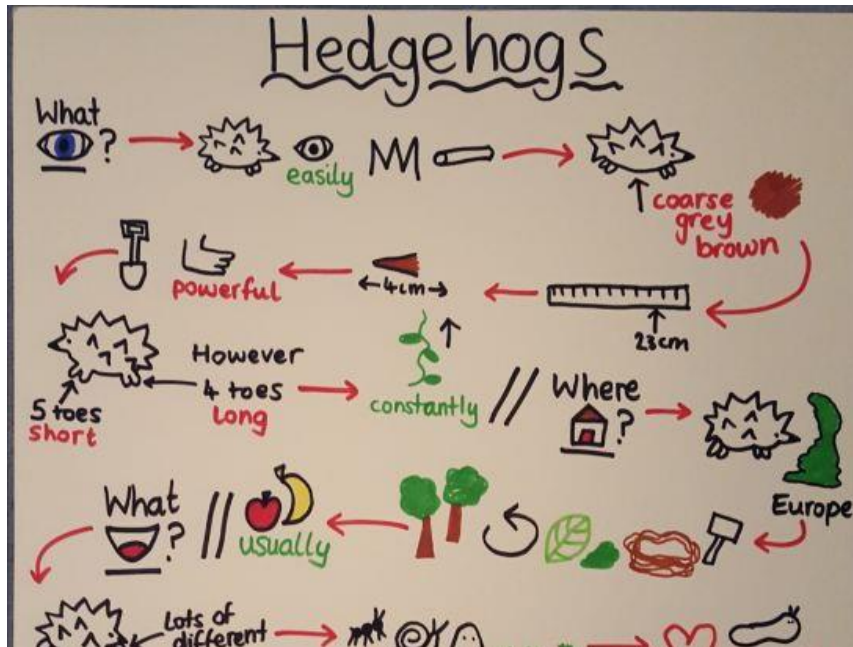 Hedgehogs
What
?
easily
coarse
grey
brown
powerful
4cm
23cm
5 toes
short
However
4 toes
Long
constantly
Where
?
Europe
usually
What
?
Lots of
different